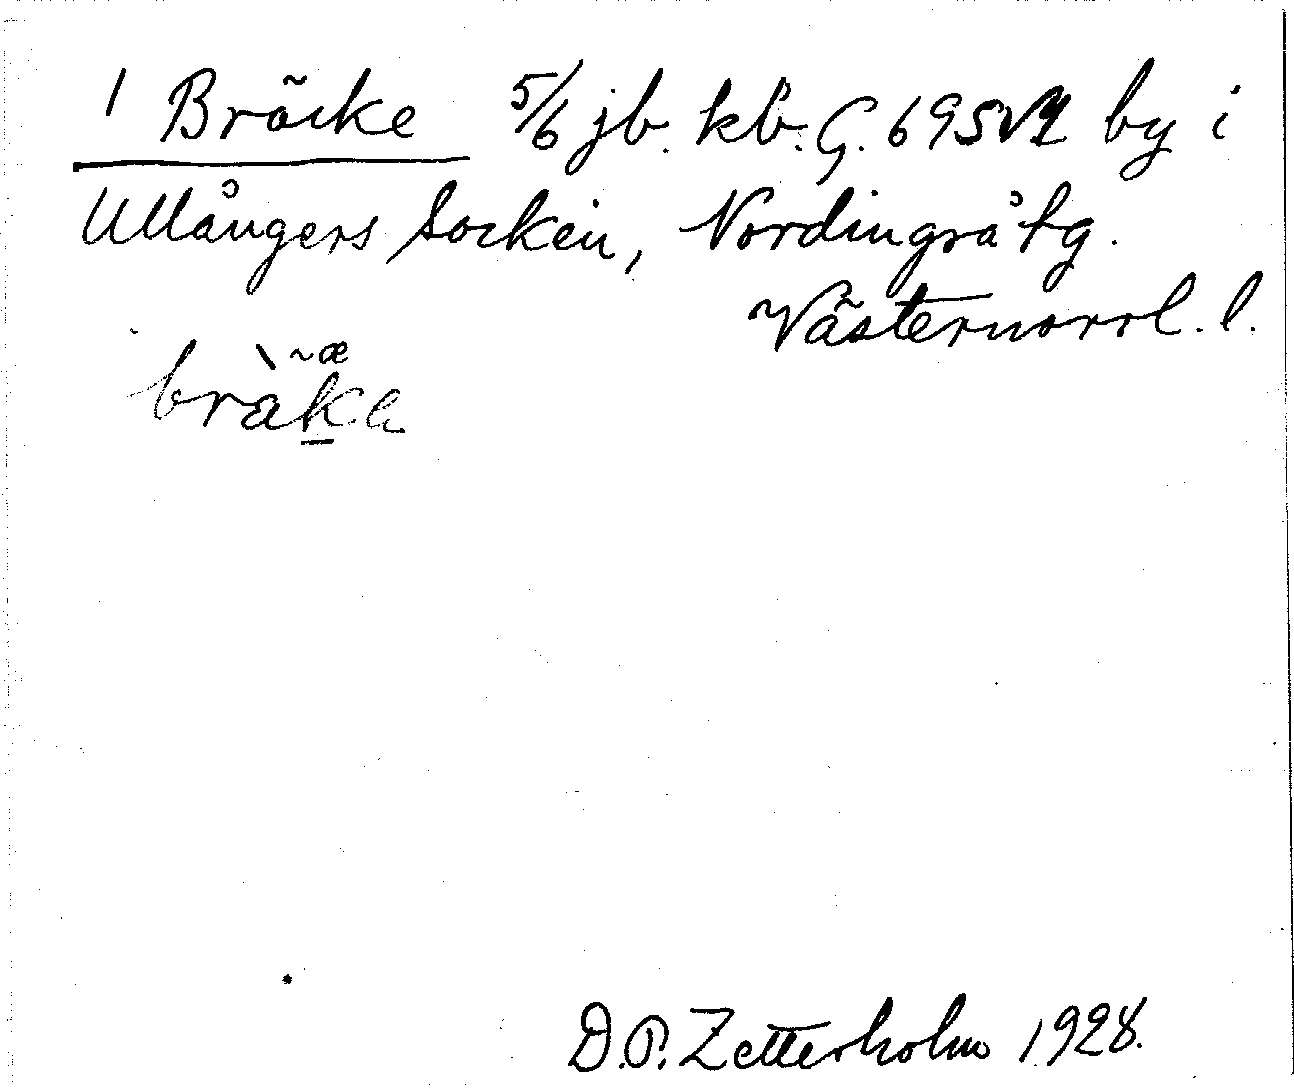 1 Bräcke 5/6 jb. kb. G. 695 by i
Ullångers socken, Nordingrå tg.
Västernorrl. l.
bräka
D.P. Zetterholm 1928.